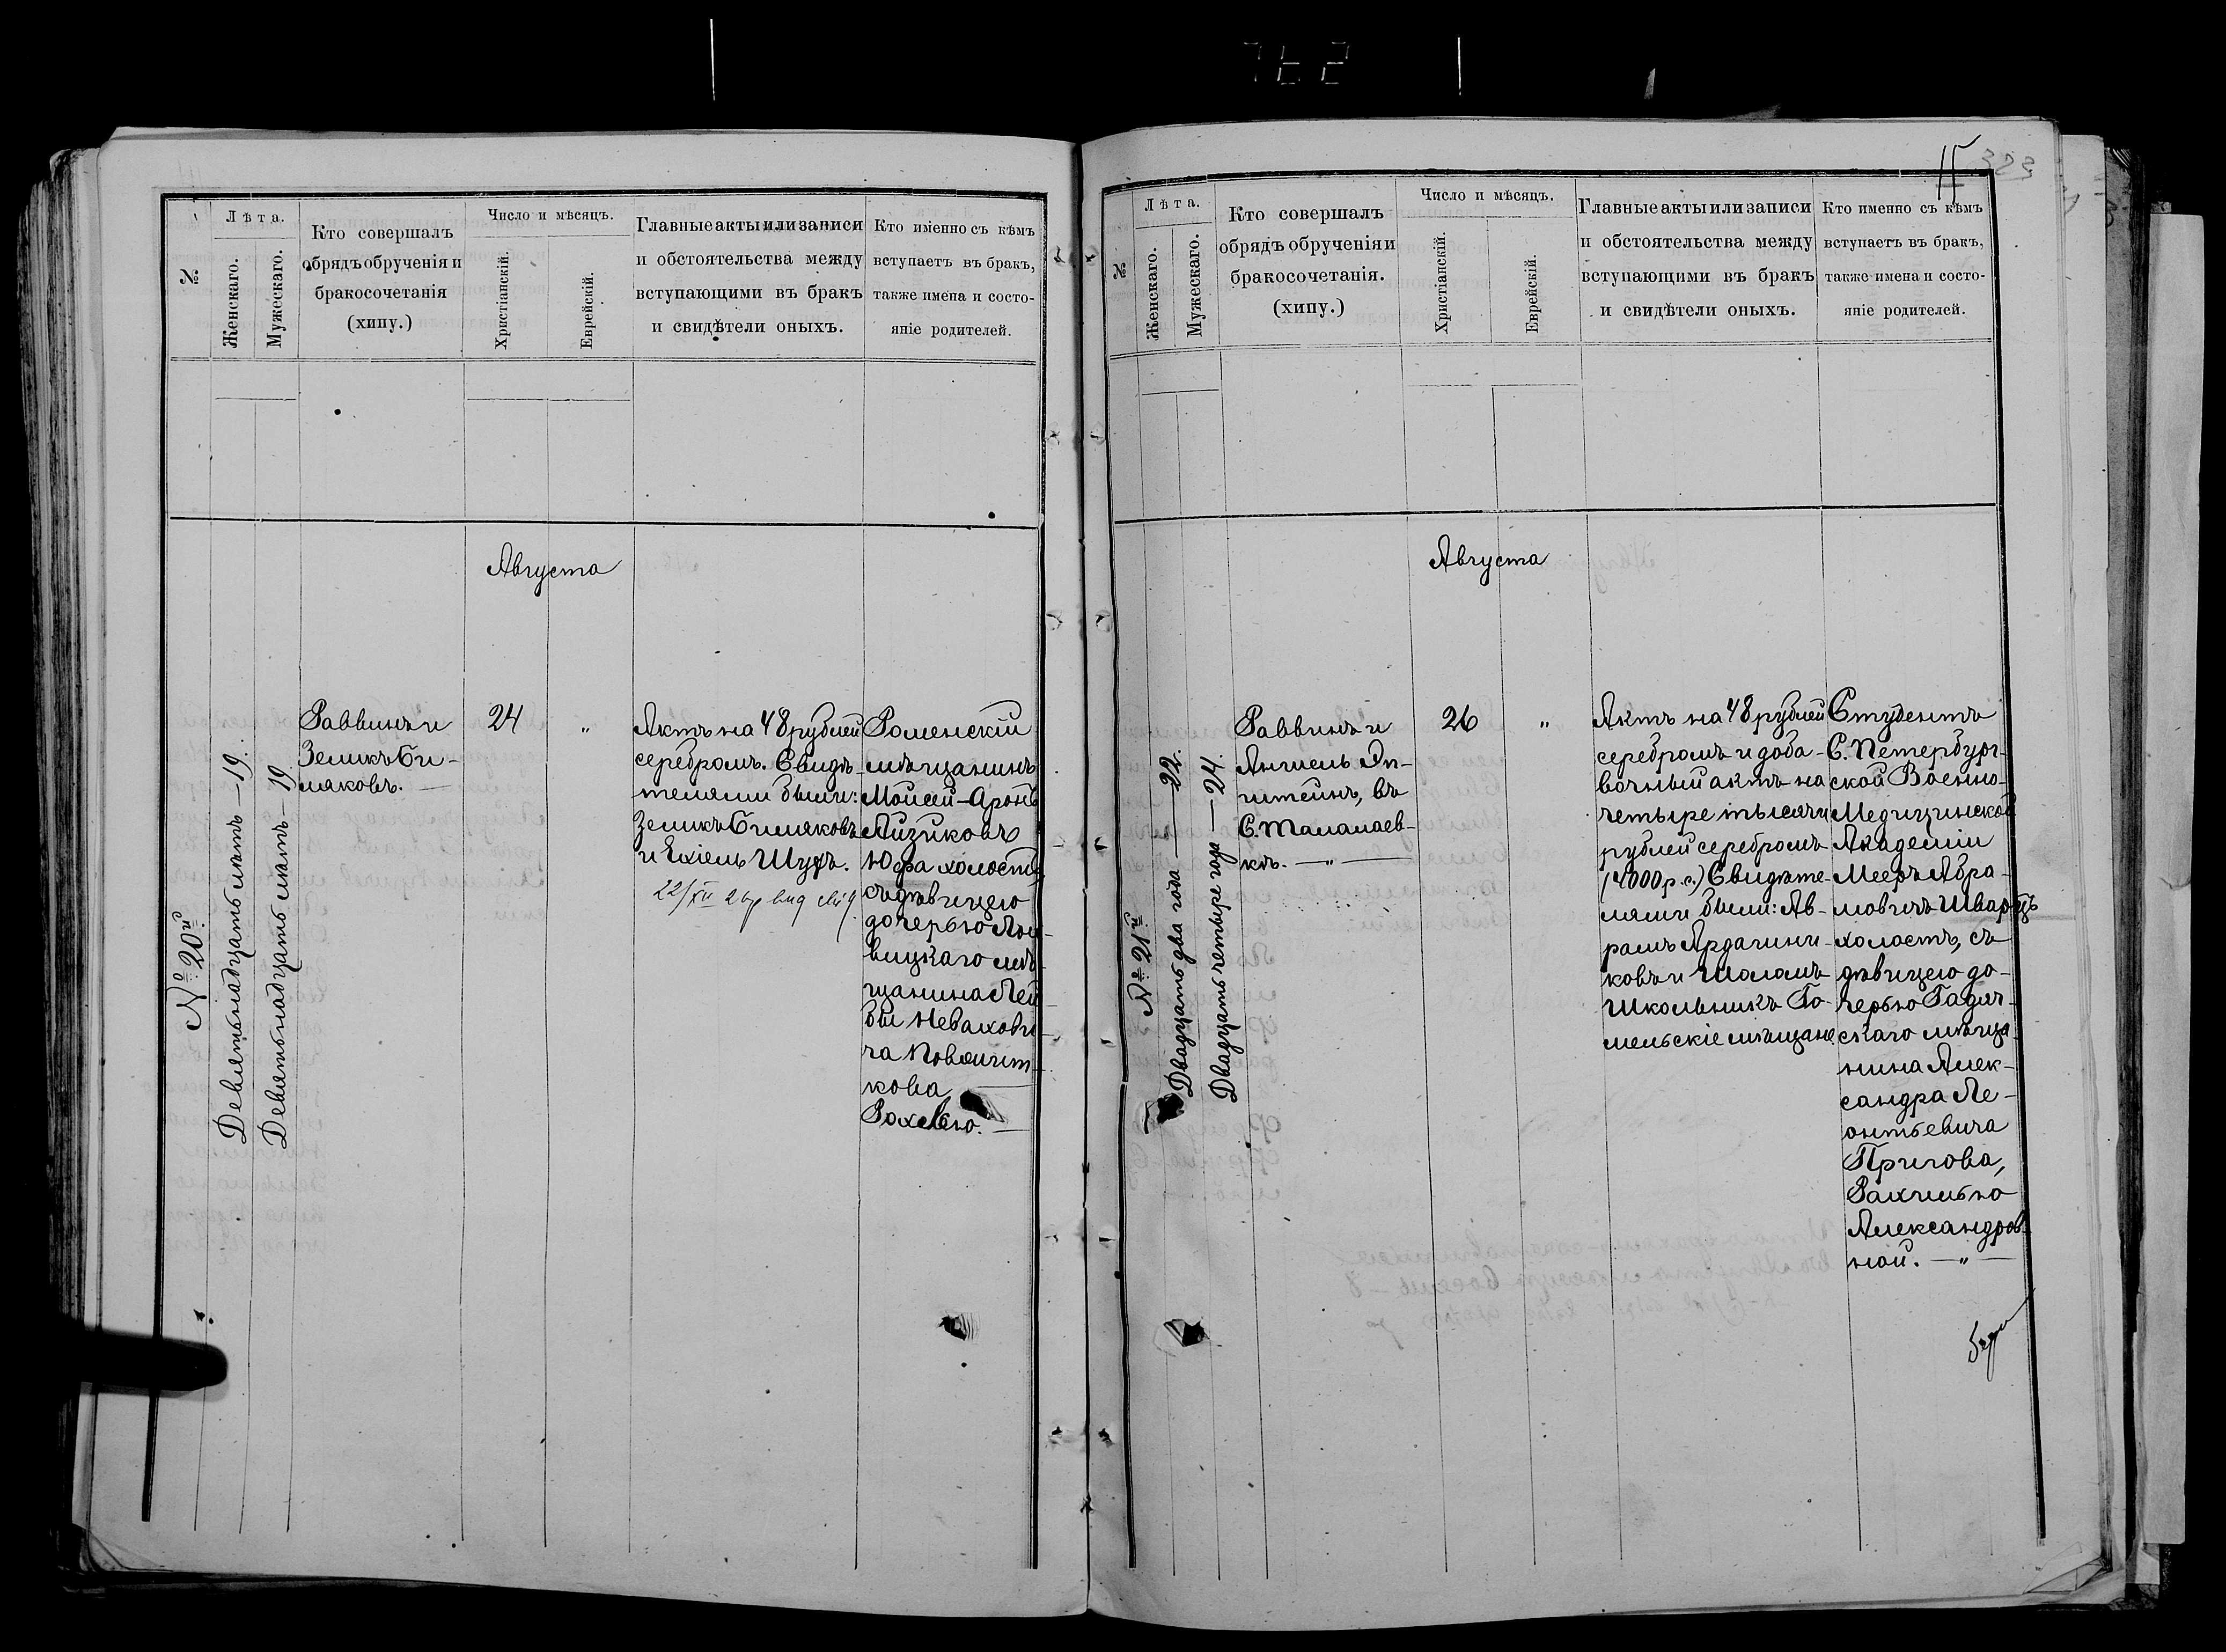 №
Лѣта.
Женскаго.
Мужескаго.
Кто совершалъ
обрядъ обрученія и
бракосочетанія
(хипу.)
Число и мѣсяцъ.
Христіанскій.
Еврейскій.
Главные акты или записи
и обстоятельства между
вступающими въ бракъ
и свидѣтели оныхъ.
Кто именно съ кѣмъ
вступаетъ въ бракъ,
также имена и состо-
яніе родителей.
Августа
№ 20й
Девятьнадцать лѣтъ — 19.
Девятьнадцать лѣтъ — 19
Раввинъ и
Зеликъ Би-
ляковъ. —
24
"
Актъ на 48 рублей
серебромъ. Свидѣ-
телями были:
Зеликъ Биляковъ
и Ехіель Шухъ.
22/XII
Роменскій
мѣщанинъ
Мойсей-Аронъ
Айзиковъ
Юфа холостъ,
съ дѣвицею
дочерью Лох-
вицкаго мѣ-
щанина Лей-
бы Невахови-
ча
кова
Рохлею. —
15
323
№
Лѣта.
Женскаго.
Мужескаго.
Кто совершалъ
обрядъ обрученія и
бракосочетанія.
(хипу.)
Число и мѣсяцъ.
Христіанскій.
Еврейскій.
Главные акты или записи
и обстоятельства между
вступающими въ бракъ
и свидѣтели оныхъ.
Кто именно съ кѣмъ
вступаетъ въ бракъ,
также имена и состо-
яніе родителей.
Августа
№ 21й
Двадцать два года — 22.
Двадцать четыре года — 24.
Раввинъ и
Аншель Эп-
штейнъ, въ
С. Талалаев-
кѣ. — " —
26
"
Актъ на 48 рублей
серебромъ и доба-
вочный актъ на
четыре тысячи
рублей серебромъ
(4000 р. с.) Свидѣте-
лями были: Ав-
рамъ Ардашни-
ковъ и Шаламъ
Школьникъ Го-
мельскіе мѣщане.
Студентъ
С. Петербург-
ской Военно-
Медицинской
Академіи
Мееръ Абра-
мовичъ Шварцъ
холостъ, съ
дѣвицею до-
черью Гадяч-
скаго мѣща-
нина Алек-
сандра Ле-
онтьевича
Пригова,
Рахилью
Александров-
ной. — " —